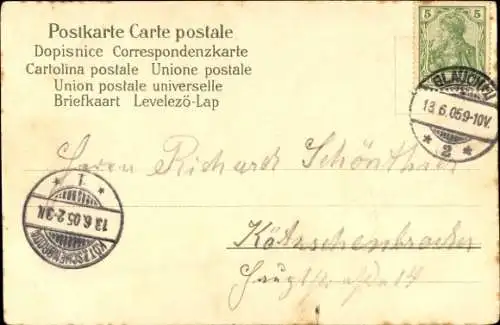 Postkarte Carte postale
Dopisnice Correspondenzkarte
Cartolina postale Unione postale
Union postale universelle
Briefkaart Levelezö-Lap
5 5
GLAUCHAU
13.6.05 9-10V.
* 2 *
Herrn Richard Schönther
* 1 *
13.6.05.2-3N.
KÖTZSCHENBRODA
Kötzschenbroda
Hauptstraße 14